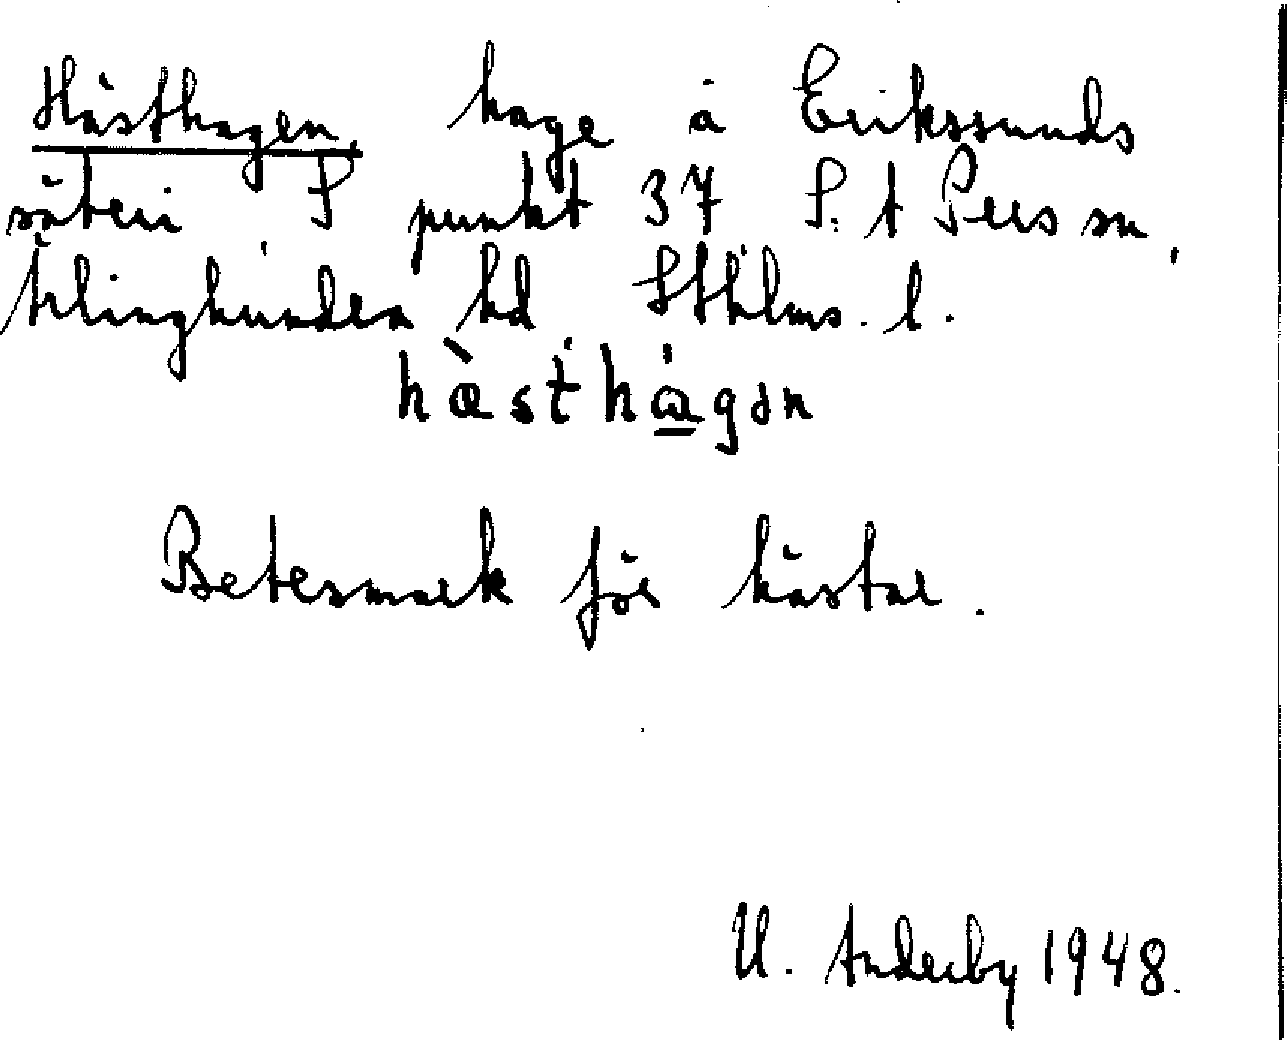 Hästhagen, hage å Erikssunds
säteri S punkt 37 S:t Pers sn,
Ärlinghundra hd, Sthlms. l.
hàst'hàgən
Betesmark för hästar.
U. Anderby 1948.